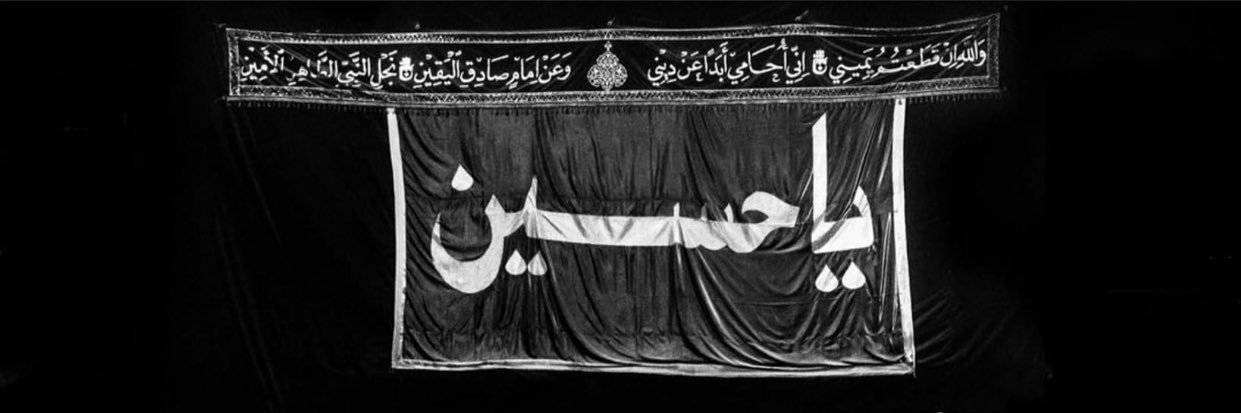 وَاللهِ اِنْ قَطَعْتُمُ يَمينِي اِنّي أُحَامِي أَبَدًا عَنْ دِيْنِي وَعَنْ اِمَامٍ صَادِقِ الْيَقِيْنِ نَجْلِ النَّبِيِّ الطَّاهِرِ الْأَمِيْنِ
يا حسين